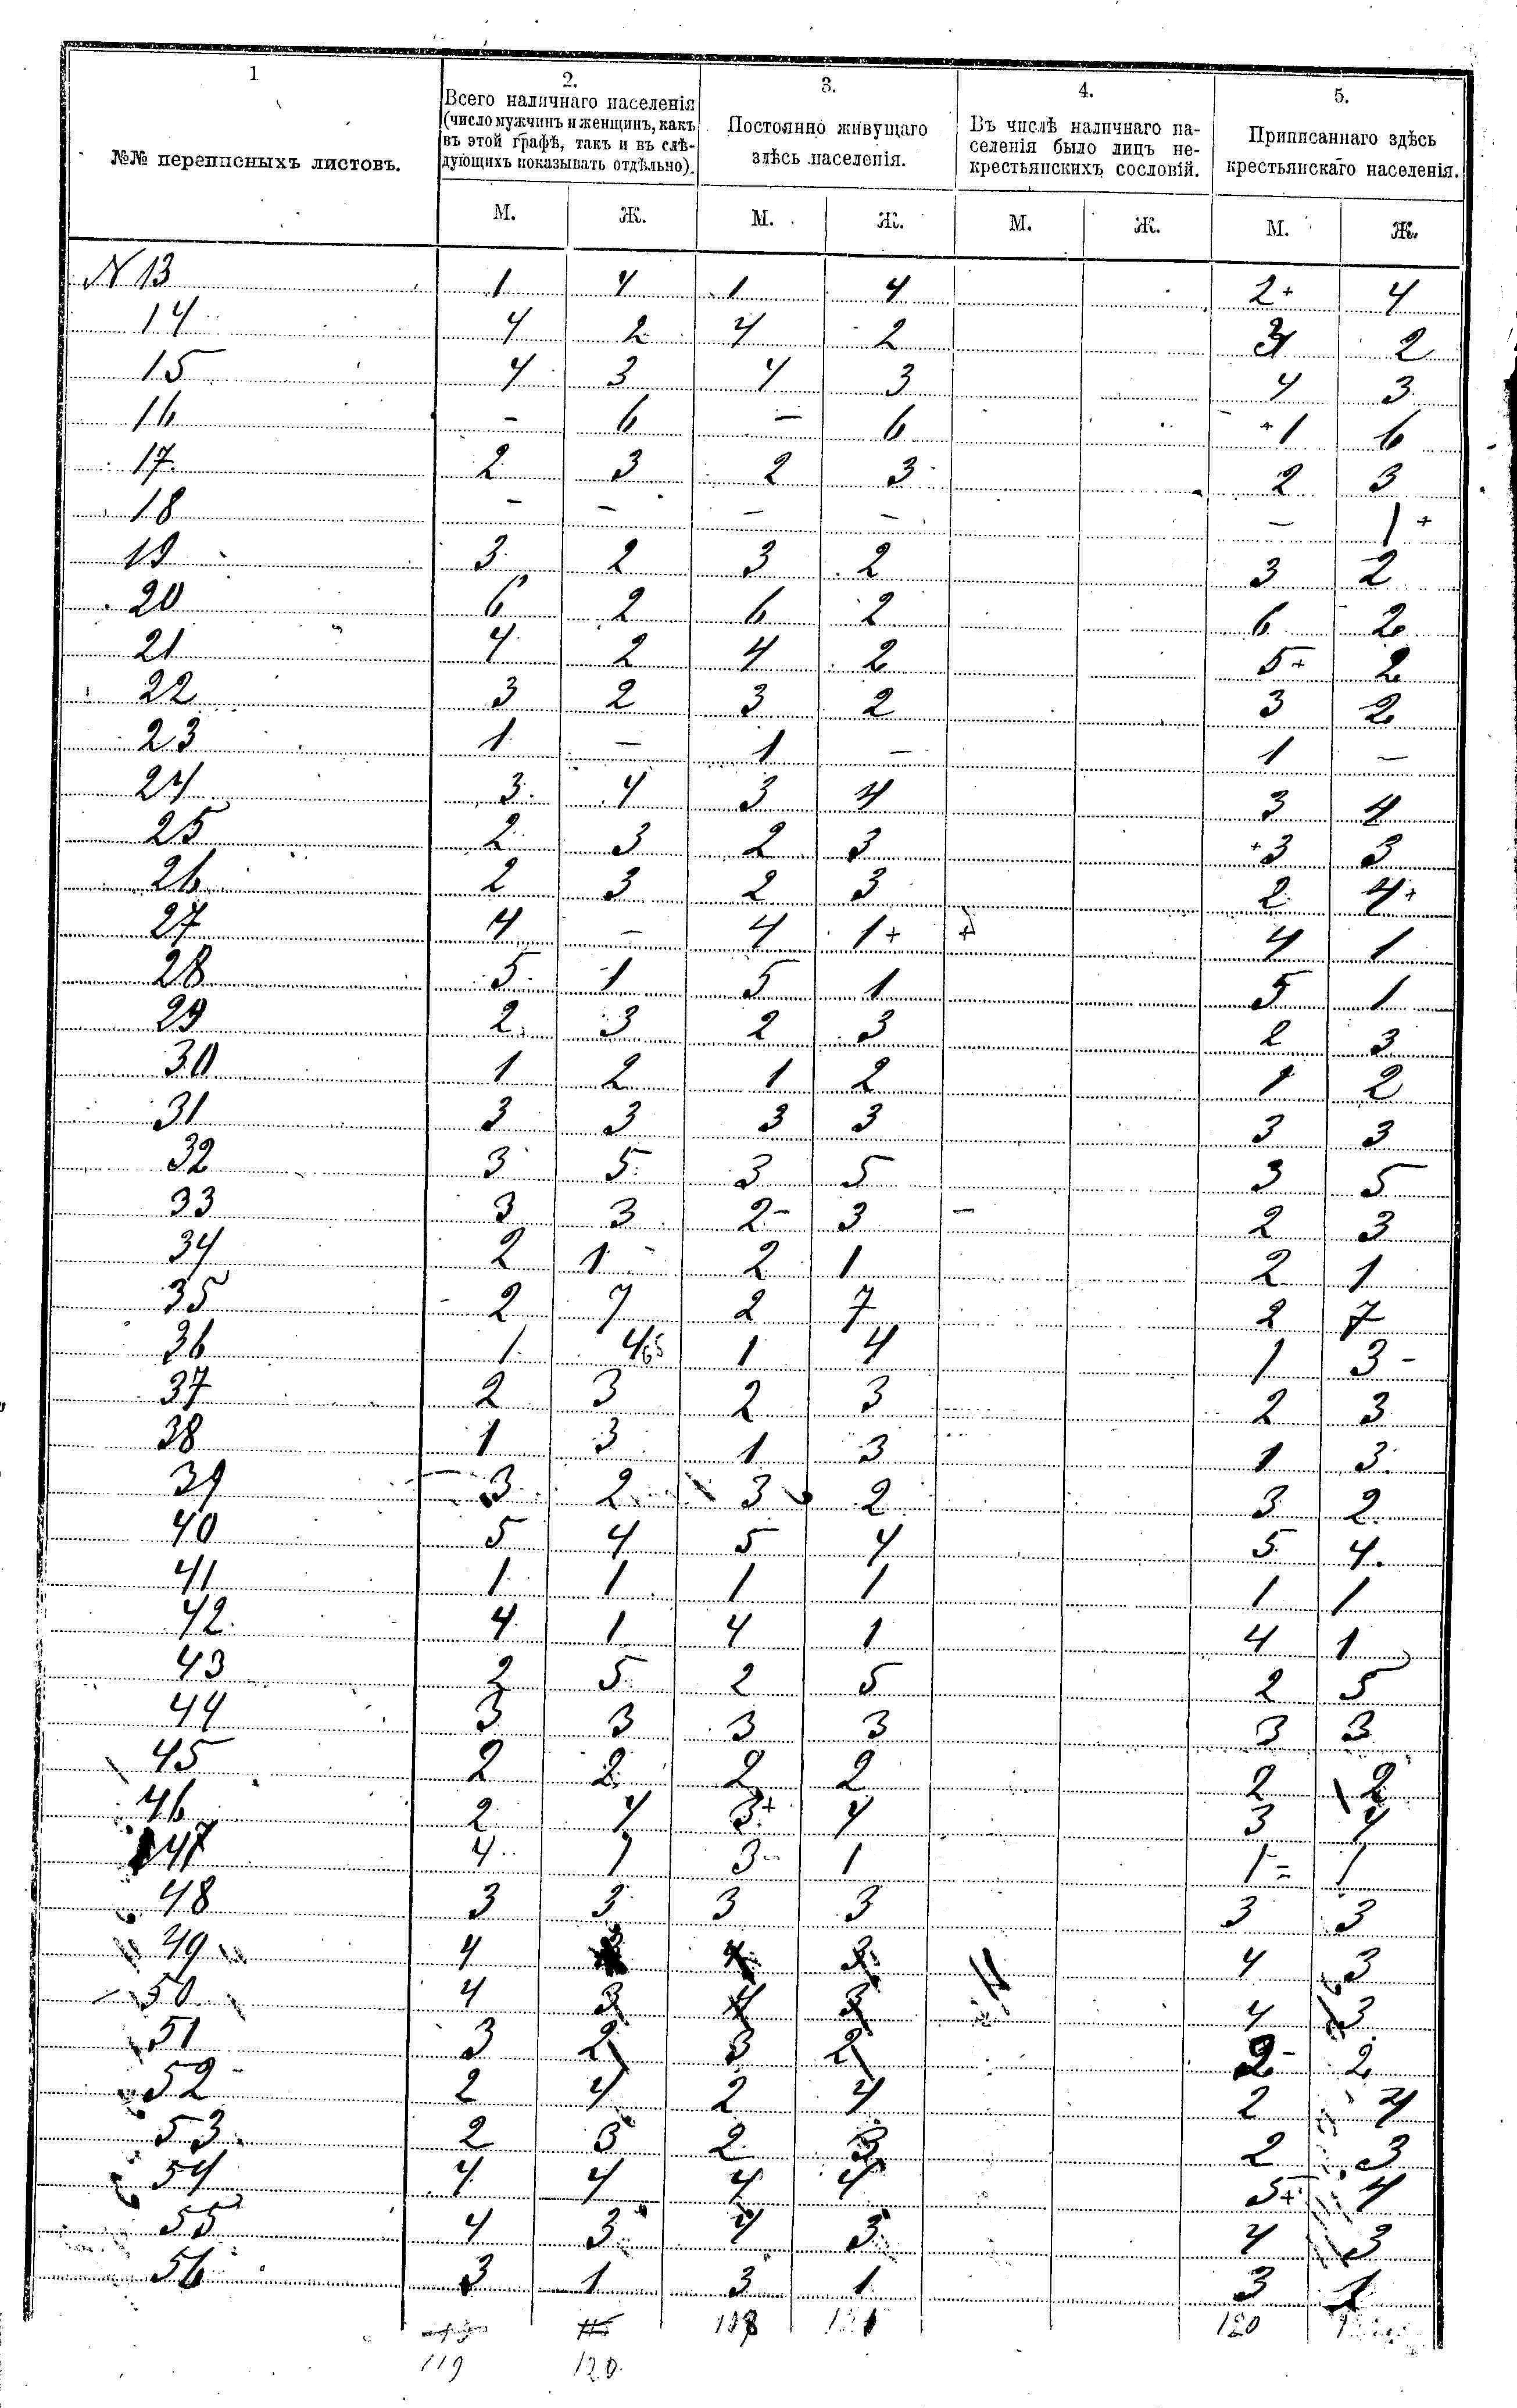 1 2. 3. 4. 5.
№№ переписныхъ листовъ.
Всего наличнаго населенія
(число мужчинъ и женщинъ, какъ
въ этой графѣ, такъ и въ слѣ-
дующихъ показывать отдѣльно).
Постоянно живущаго
здѣсь населенія.
Въ числѣ наличнаго на-
селенія было лицъ не-
крестьянскихъ сословій.
Приписаннаго здѣсь
крестьянскаго населенія.
М. Ж. М. Ж. М. Ж. М. Ж.
N 13 1 4 1 4 2+ 4
14 4 2 4 2 2
15 4 3 4 3 4 3
16 - 6 - 6 +1 6
17 2 3 2 3 2 3
18 - - - - - 1+
19 3 2 3 2 3 2
20 6 2 6 2 6 2
21 4 2 4 2 5+ 2
22 3 2 3 2 3 2
23 1 - 1 - 1 -
24 3 4 3 4 3 4
25 2 3 2 3 +3 3
26 2 3 2 3 2 4+
27 4 - 4 1+ + 4 1
28 5 1 5 1 5 1
29 2 3 2 3 2 3
30 1 2 1 2 1 2
31 3 3 3 3 3 3
32 3 5 3 5 3 5
33 3 3 2- 3 - 2 3
34 2 1 - 2 1 2 1
35 2 7 2 7 2 7
36 1 4 1 4 1 3-
37 2 3 2 3 2 3
38 1 3 1 3 1 3
39 3 2 3 2 3 2
40 5 4 5 4 5 4
41 1 1 1 1 1 1
42 4 1 4 1 4 1
43 2 5 2 5 2 5
44 3 3 3 3 3 3
45 2 2 2 2 2 2
46 2 4 3+ 4 3 4
47 4 1 3- 1 1= 1
48 3 3 3 3 3 3
49 4 3 4 3 4 3
50 4 3 4 3 4 3
51 3 2 3 2 2- 2
52 2 4 2 4 2 4
53 2 3 2 3 2 3
54 4 4 4 4 5+ 4
55 4 3 4 3 4 3
56 3 1 3 1 3 1
118 121 120
119 120